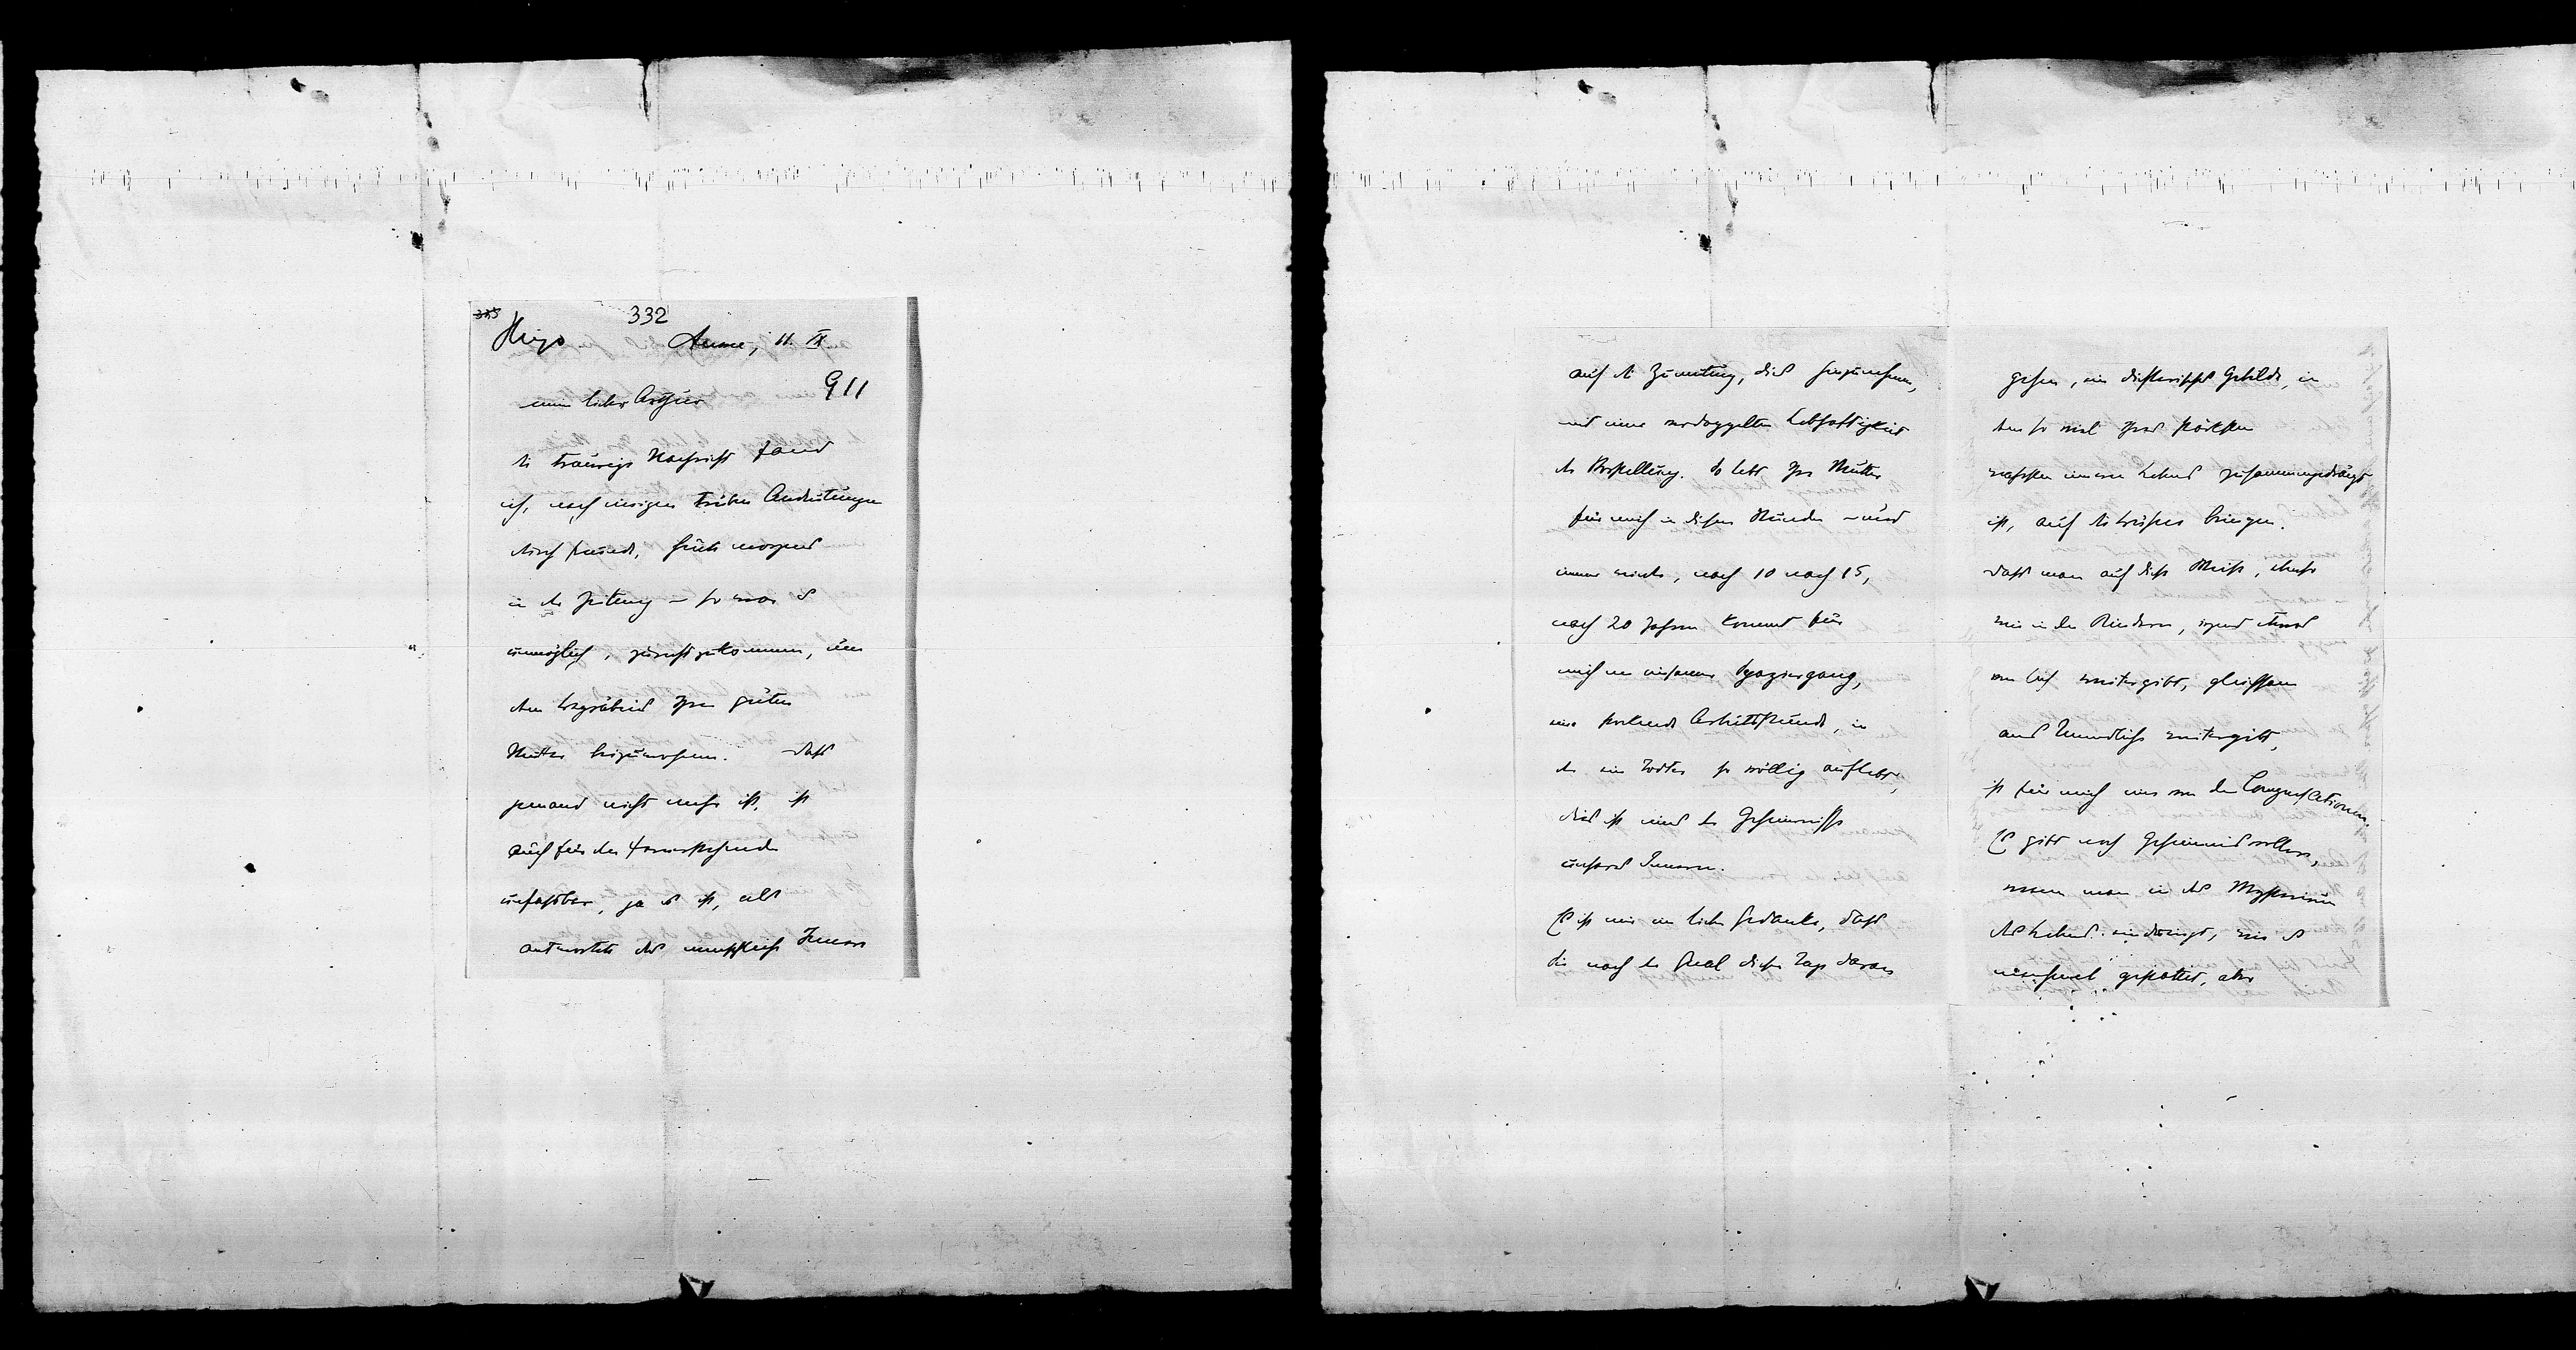 335
332
Hugo
Aussee, 11. IX
911
mein lieber Arthur
die traurige Nachricht fand
ich, nach einigen trüben Andeutungen
durch Freunde, früh morgens
in der Zeitung – so war es
unmöglich, zurecht zu kommen, um
dem Begräbnis Ihrer guten
Mutter beizuwohnen. Dass
jemand nicht mehr ist, ist
auch für den Fernerstehenden
unfassbar, ja es ist, als
antwortete das menschliche Innere
auf die Zumutung, dies hinzunehmen,
mit einer verdoppelten Lebhaftigkeit
der Vorstellung. So lebt Ihre Mutter
für mich in diesen Stunden – und
immer wieder, nach 10 nach 15,
nach 20 Jahren kommt für
mich ein einsamer Spaziergang,
eine stockende Arbeitsstunde, in
der ein Todter so völlig auflebt,
dies ist eines der Geheimnisse
unseres Innern.
Es ist mir ein lieber Gedanke, dass
Sie nach der Qual dieser Tage daran
gehen, ein dichterisches Gebilde, in
dem so viel Ihres stärksten
wahrsten inneren Lebens zusammengedrängt
ist, auf die Bühne bringen.
Dass man auf diese Weise, ebenso
wie in den Kindern, irgend etwas
von sich weitergibt, gleichsam
ans Unendliche weitergibt,
ist für mich eine von den Compensationen.
Es gibt noch Geheimnisvolleres,
wenn man in das Mysterium
des Lebens eindringt, wie es
manchmal gestattet, aber